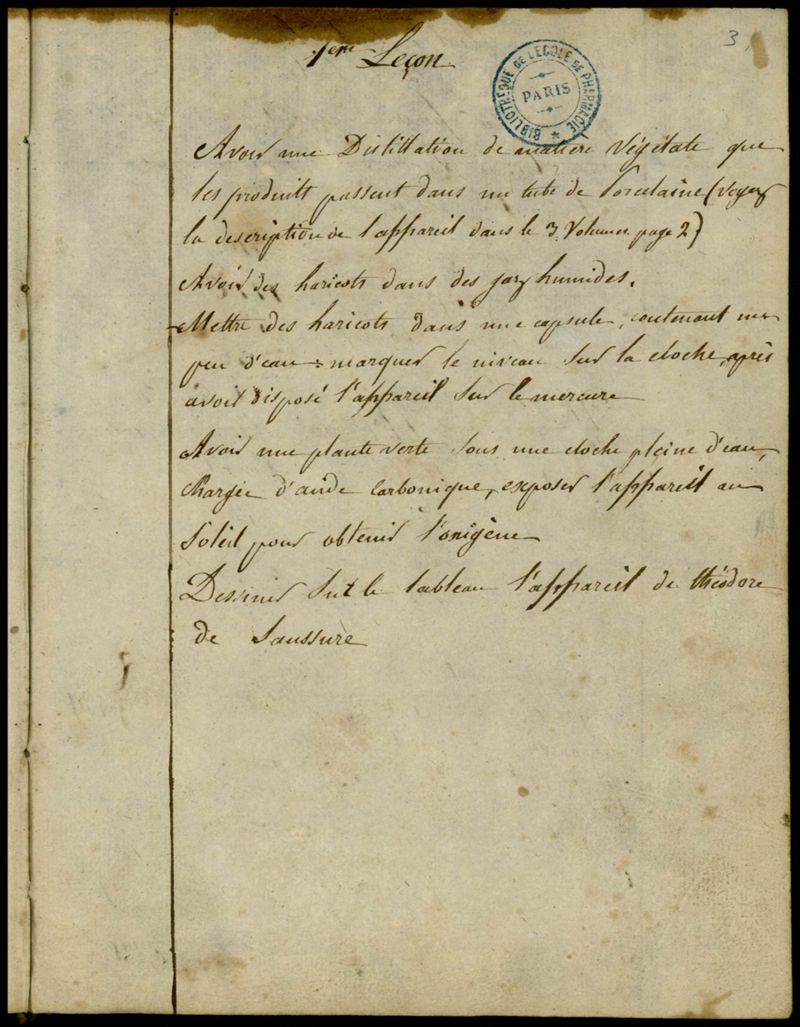 3,
1ere Leçon
BIBLIOTHÈQUE DE L'ECOLE DE PHARMACIE
PARIS
Avoir une Distillation de matière Végétale que
les produits passent dans un tube de Porcelaine (Voyez
la description de l'appareil dans le 3. Volumes page 2)
Avoir des haricots dans des gaz humides.
Mettre des haricots dans une capsule, contenant un
peu d'eau = marquer le niveau sur la cloche, après
avoir disposé l'appareil sur le mercure
Avoir une plante verte sous une cloche pleine d'eau,
chargée d'acide Carbonique, exposer l'appareil au
Soleil pour obtenir l'oxigène
Dessiner sur le tableau l'appareil de théodore
de Saussure